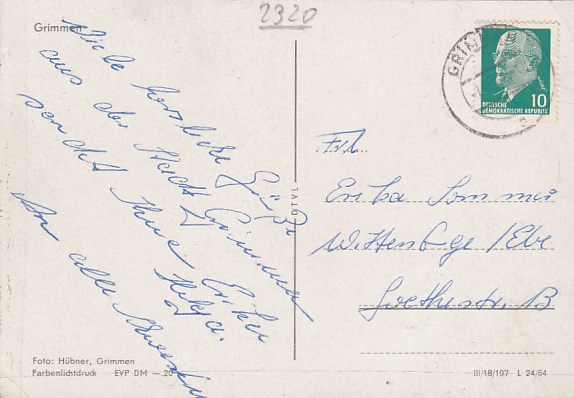 2320
Grimmen
Viele herzliche Grüße
aus der Stadt Grimmen
sendet Ihnen Erika
Helga.
An alle
GRIM
10
DEUTSCHE
DEMOKRATISCHE REPUBLIK
Frl.
Erika Sommer
Wittenbge/Elbe
Goethestr. 13
DTVL
Foto: Hübner, Grimmen
Farbenlichtdruck EVP DM —.20
III/18/197 L 24/64